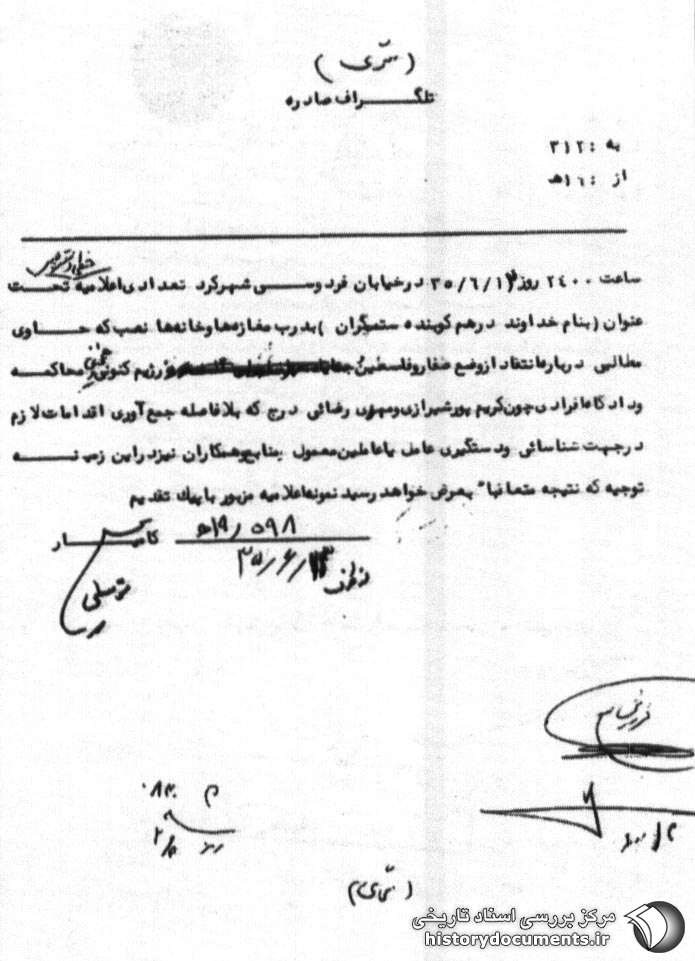 (سری)
تلگراف صادره
به : ۳۱۲
از : ۱۶هـ
خیلی فوری
ساعت ۲٤۰۰ روز ۳۵/٦/۱۲ در خیابان فردوسی شهرکرد تعدادی اعلامیه تحت
عنوان (بنام خداوند درهم کوبنده ستمگران ) بدرب مغازه‌ها و خانه‌ها نصب که حاوی
مطالبی درباره انتقاد از وضع ظفار و فلسطین رژیم کنونی محاکمه
و دادگاه افرادی چون کریم پور شیرازی و مهدی رضائی درج که بلافاصله جمع آوری اقدامات لازم
در جهت شناسائی و دستگیری عامل یا عاملین معمول بمنابع و همکاران نیز در این زمینه
توجیه که نتیجه متعاقبا" بعرض خواهد رسید نمونه اعلامیه مزبور با پیک تقدیم
۵۹۸ /۱۹هـ
۳۵/۶/۱۳
توسلی
مرکز بررسی اسناد تاریخی
historydocuments.ir